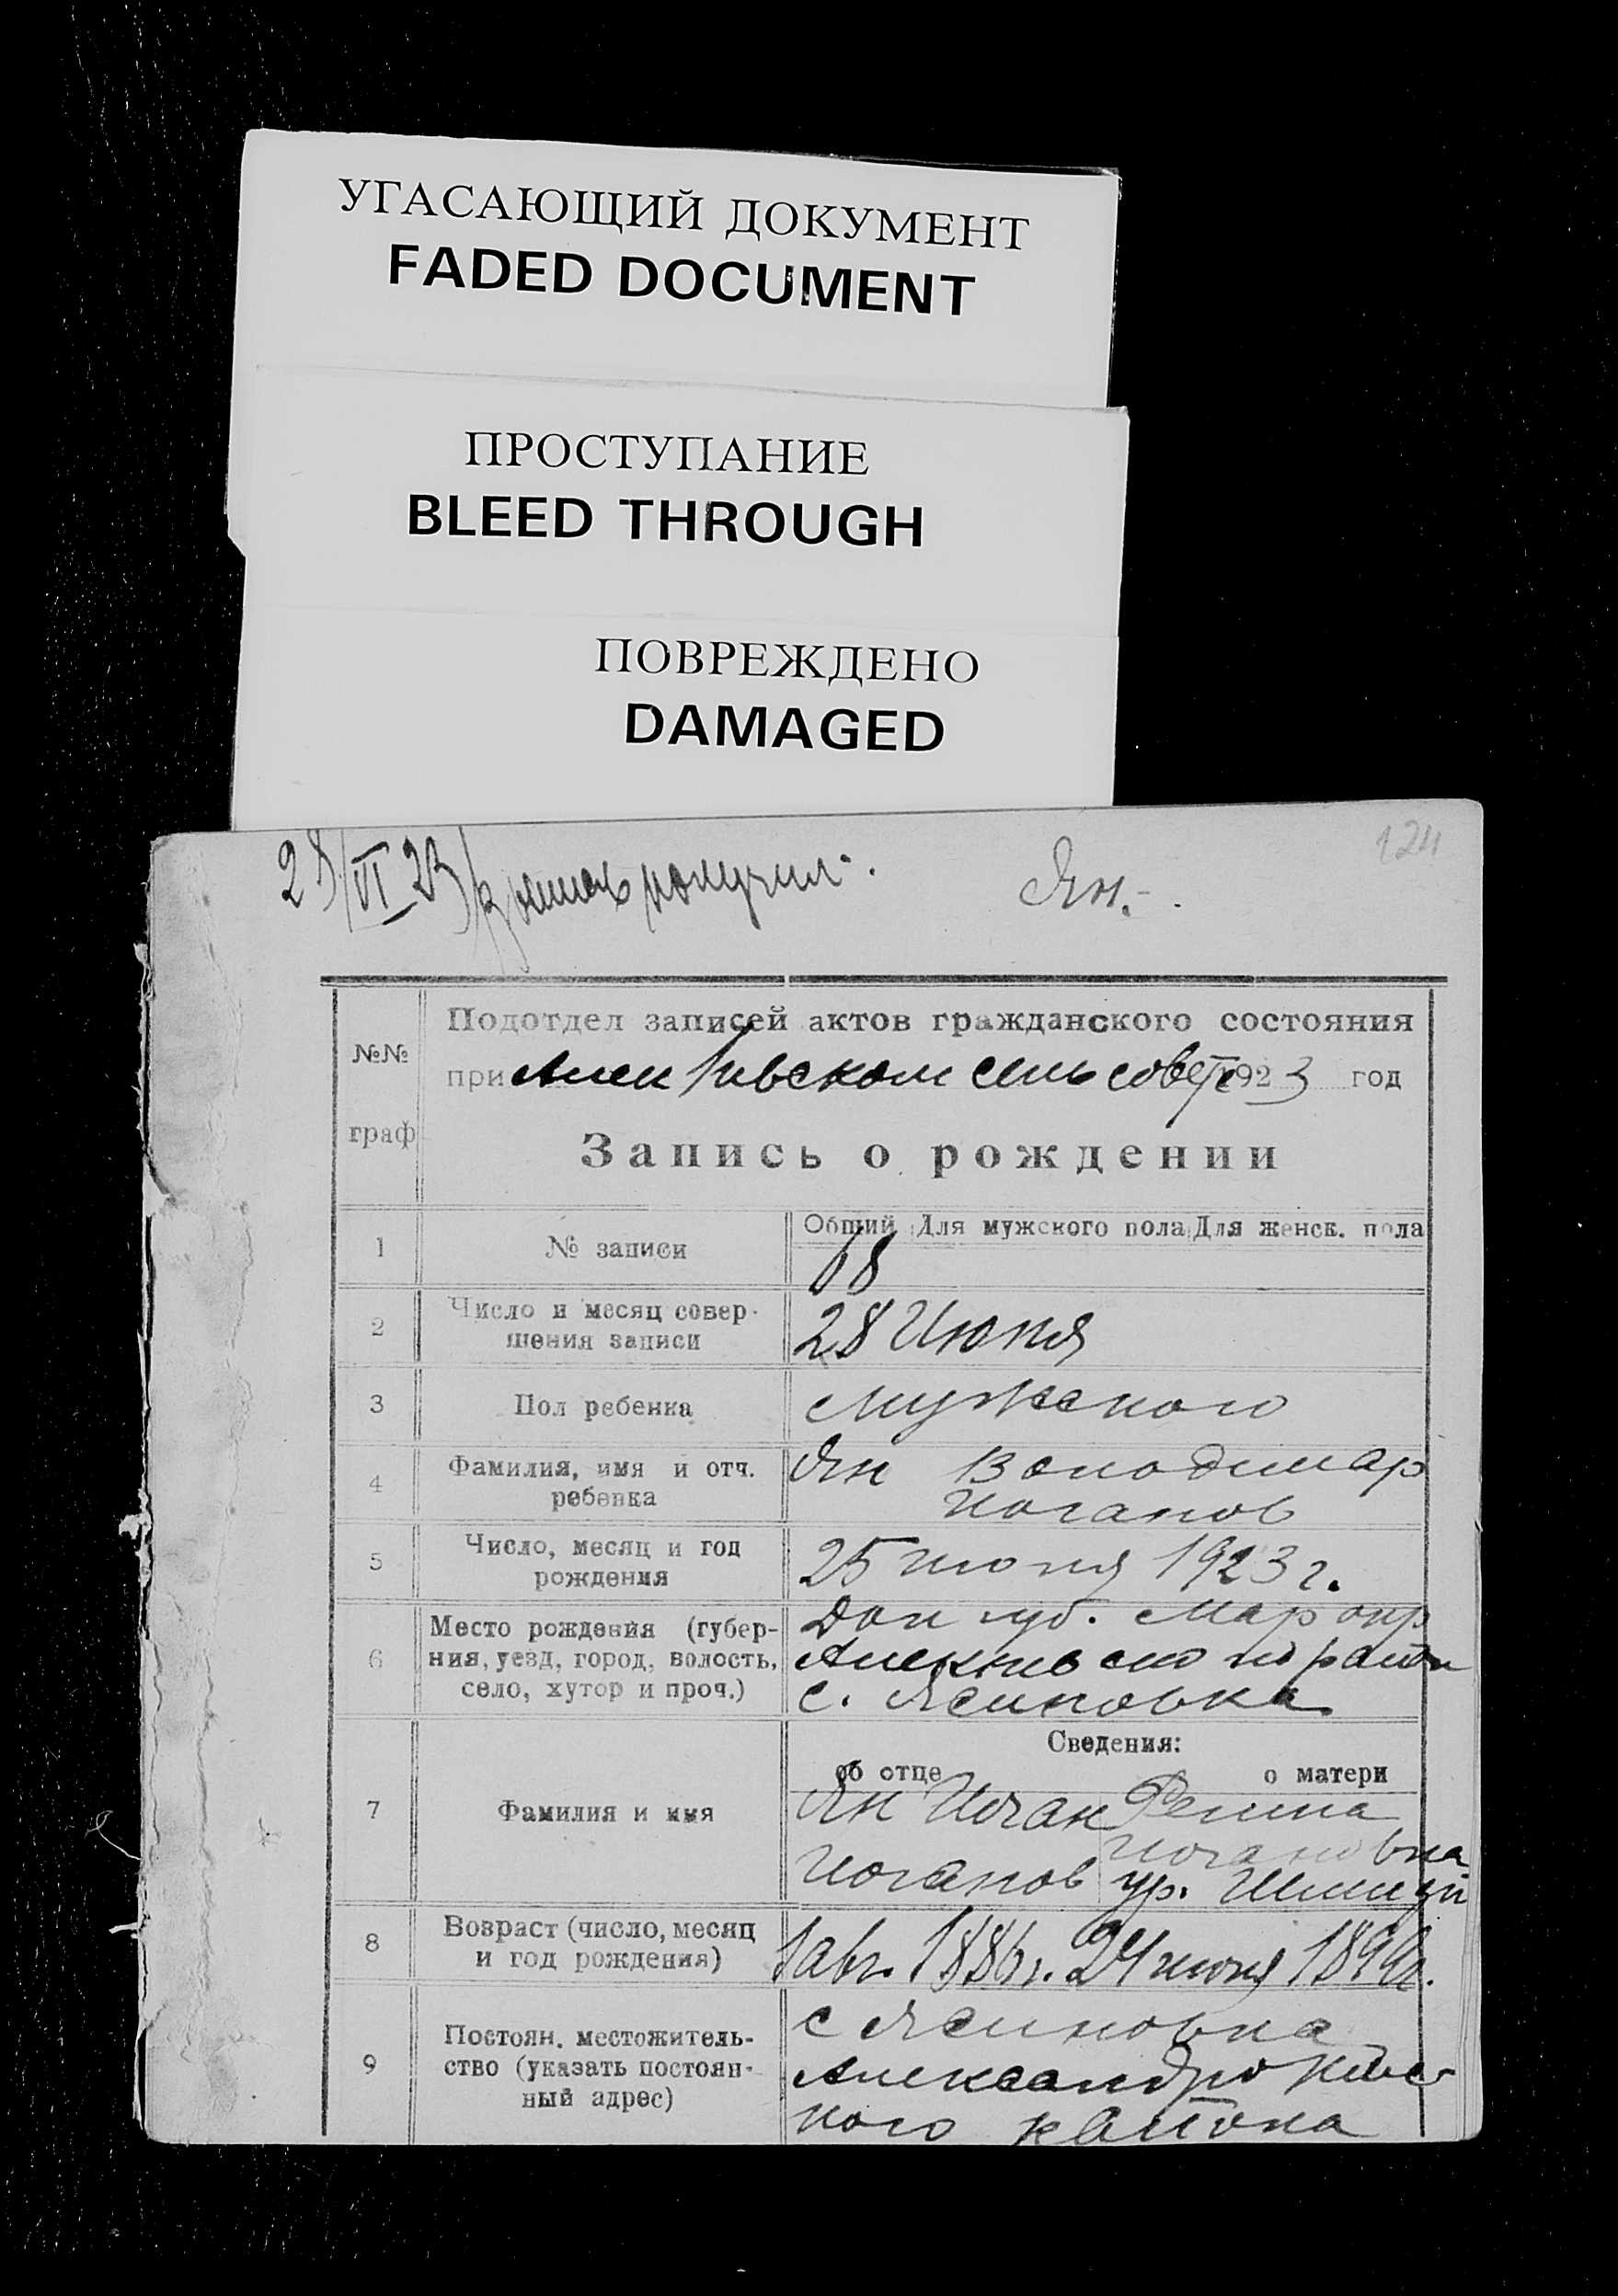 УГАСАЮЩИЙ ДОКУМЕНТ
FADED DOCUMENT
ПРОСТУПАНИЕ
BLEED THROUGH
ПОВРЕЖДЕНО
DAMAGED
124
28/VI 23 получил.
Ян.-
Подотдел записей актов гражданского состояния
№№
при сельсовете 1923 год
граф
Запись о рождении
Общий Для мужского пола Для женск. пола
1 № записи 68
2 Число и месяц совер-
шения записи 28 Июня
3 Пол ребенка мужского
4 Фамилия, имя и отч. Ян Володимар
ребенка Иоганов
5 Число, месяц и год 25 июня 1923 г.
рождения
Место рождения (губер- Дон губ. Мар окр
6 ния, уезд, город, волость,
село, хутор и проч.) с. Ясиновка
Сведения:
об отце о матери
7 Фамилия и имя Ян Иоган
Иогановна
Иоганов ур.
8 Возраст (число, месяц
и год рождения) 1 авг. 1886 г. 24 июня
с Ясиновка
9 Постоян. местожитель-
ство (указать постоян-
ный адрес)
кого района